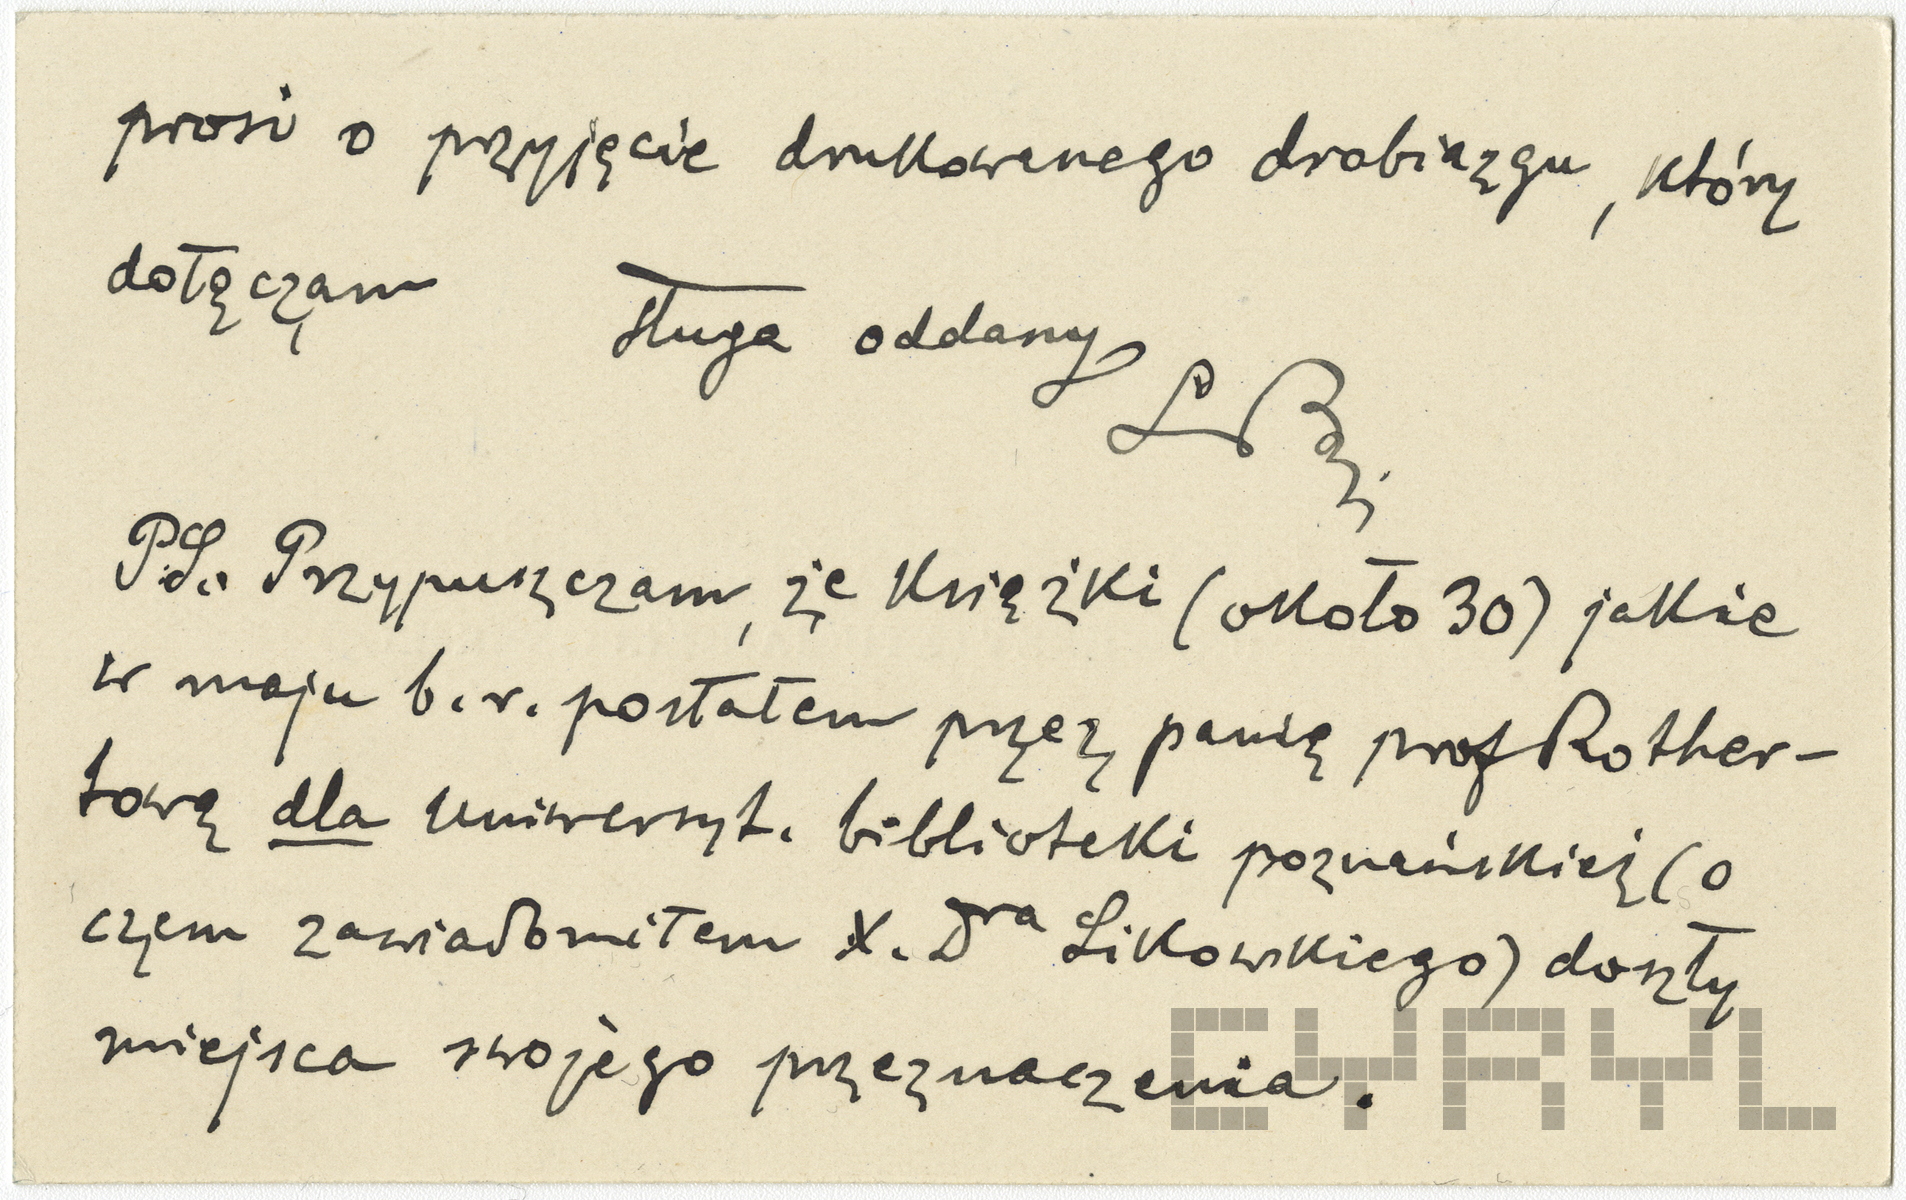 prosi o przyjęcie drukowanego drobiazgu, który
dołączam
Sługa oddany
PS. Przypuszczam, że książki (około 30) jakie
w maju b.r. posłałem przez panią prof Rother-
tową dla Uniwersyt. biblioteki poznańskiej (o
czem zawiadomiłem X. Dra Likowskiego) doszły
miejsca swojego przeznaczenia.
CYRYL